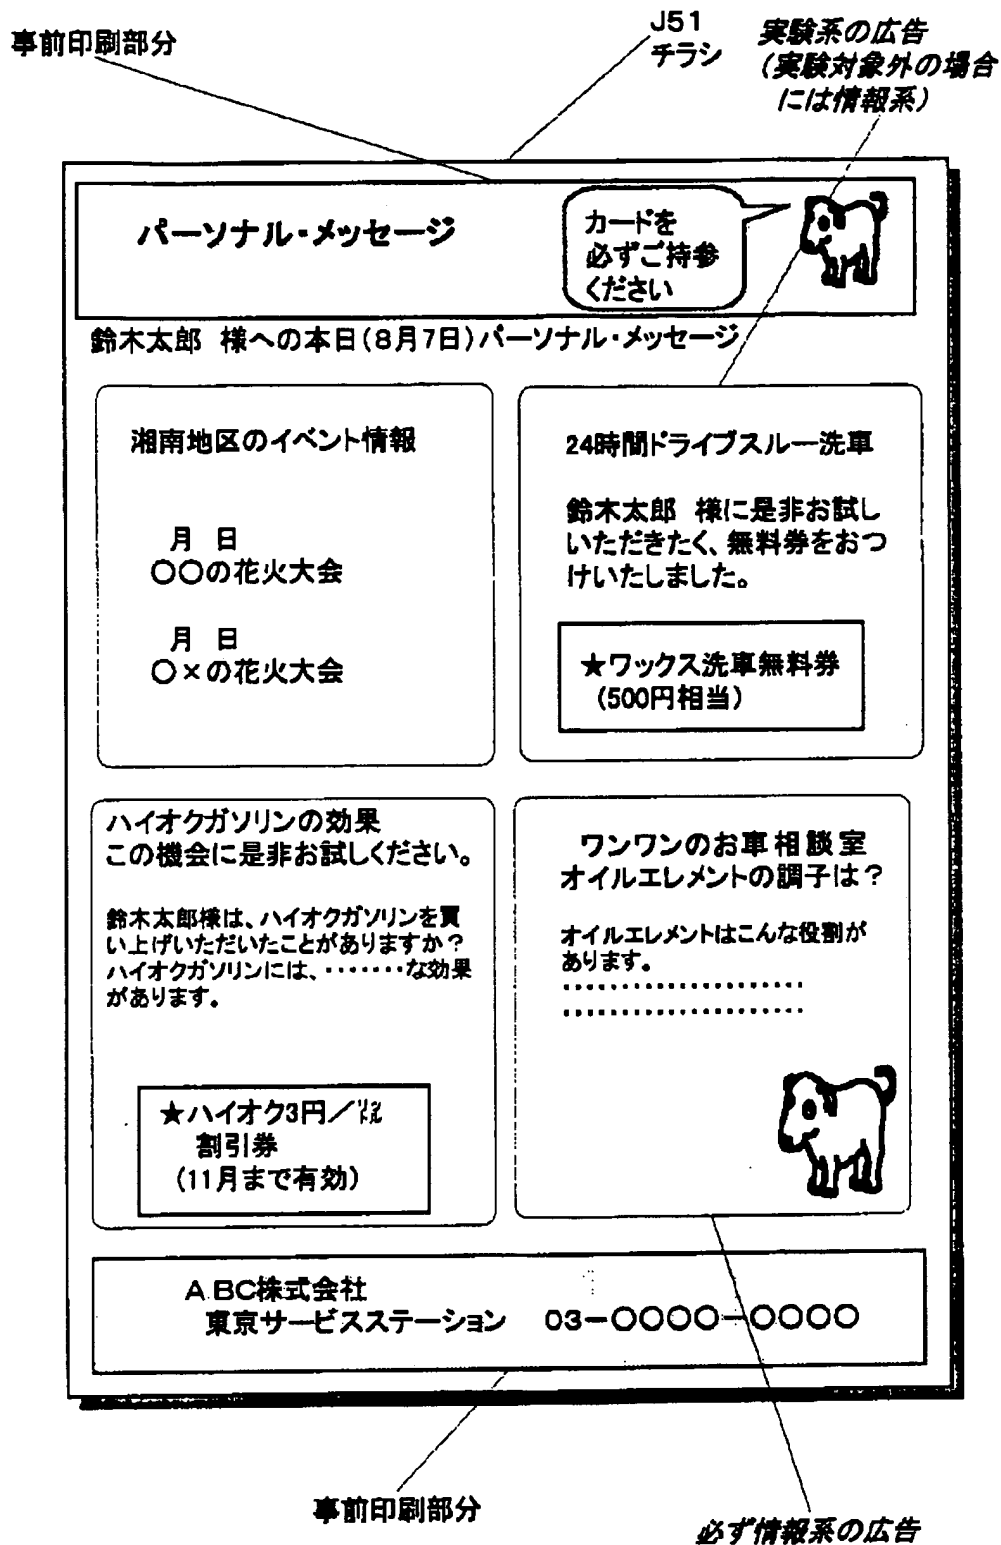 事前印刷部分
J51
チラシ
実験系の広告
(実験対象外の場合
には情報系)
パーソナル・メッセージ
カードを
必ずご持参
ください
鈴木太郎 様への本日(8月7日)パーソナル・メッセージ
湘南地区のイベント情報
月 日
○○の花火大会
月 日
○×の花火大会
24時間ドライブスルー洗車
鈴木太郎 様に是非お試し
いただきたく、無料券をおつ
けいたしました。
★ワックス洗車無料券
(500円相当)
ハイオクガソリンの効果
この機会に是非お試しください。
鈴木太郎様は、ハイオクガソリンを買
い上げいただいたことがありますか?
ハイオクガソリンには、・・・・・・・な効果
があります。
★ハイオク3円/㍑
割引券
(11月まで有効)
ワンワンのお車相談室
オイルエレメントの調子は?
オイルエレメントはこんな役割が
あります。
・・・・・・・・・・・・・・・・・・・・・
・・・・・・・・・・・・・・・・・・・・・
ABC株式会社
東京サービスステーション 03-○○○○-○○○○
事前印刷部分
必ず情報系の広告